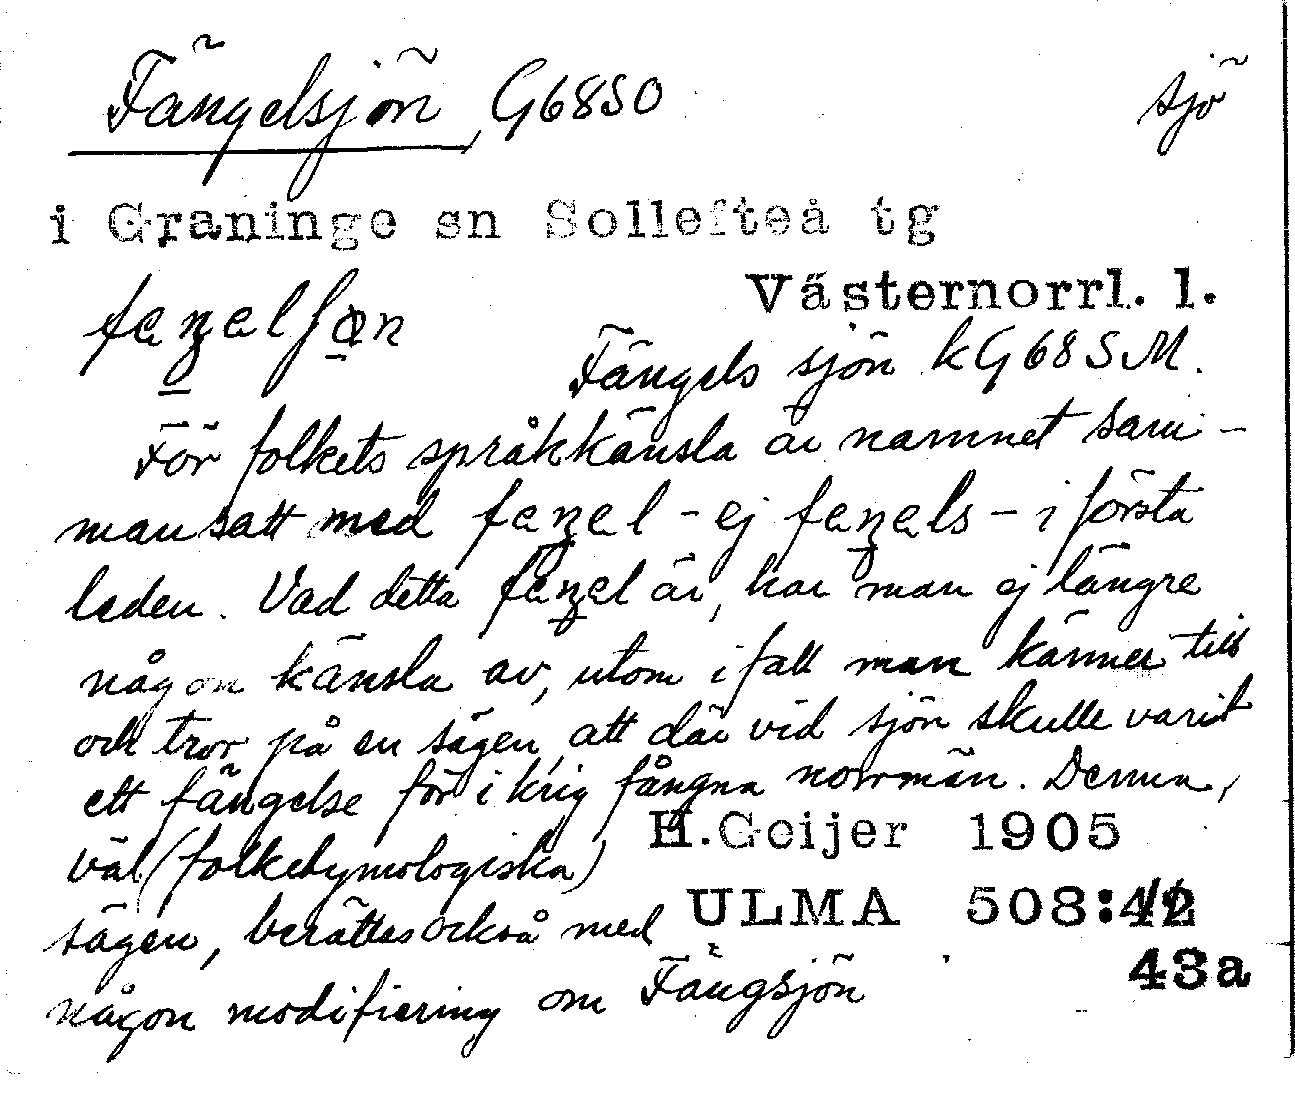 Fängelsjön, G68SO sjö
i Graninge sn Sollefteå tg
Västernorrl. l.
Fängelssjön kG68SM.
För folkets språkkänsla är namnet sam-
mansatt med feŋel - ej feŋels - i första
leden. Vad detta feŋel är, har man ej längre
någon känsla av, utom i fall man känner till
och tror på en sägen, att där vid sjön skulle varit
ett fängelse för i krig fångna norrmän. Denna,
väl (folketymologiska)
sägen, berättes också med
någon modifiering om Fängsjön
H.Geijer 1905
ULMA 508:42
43a